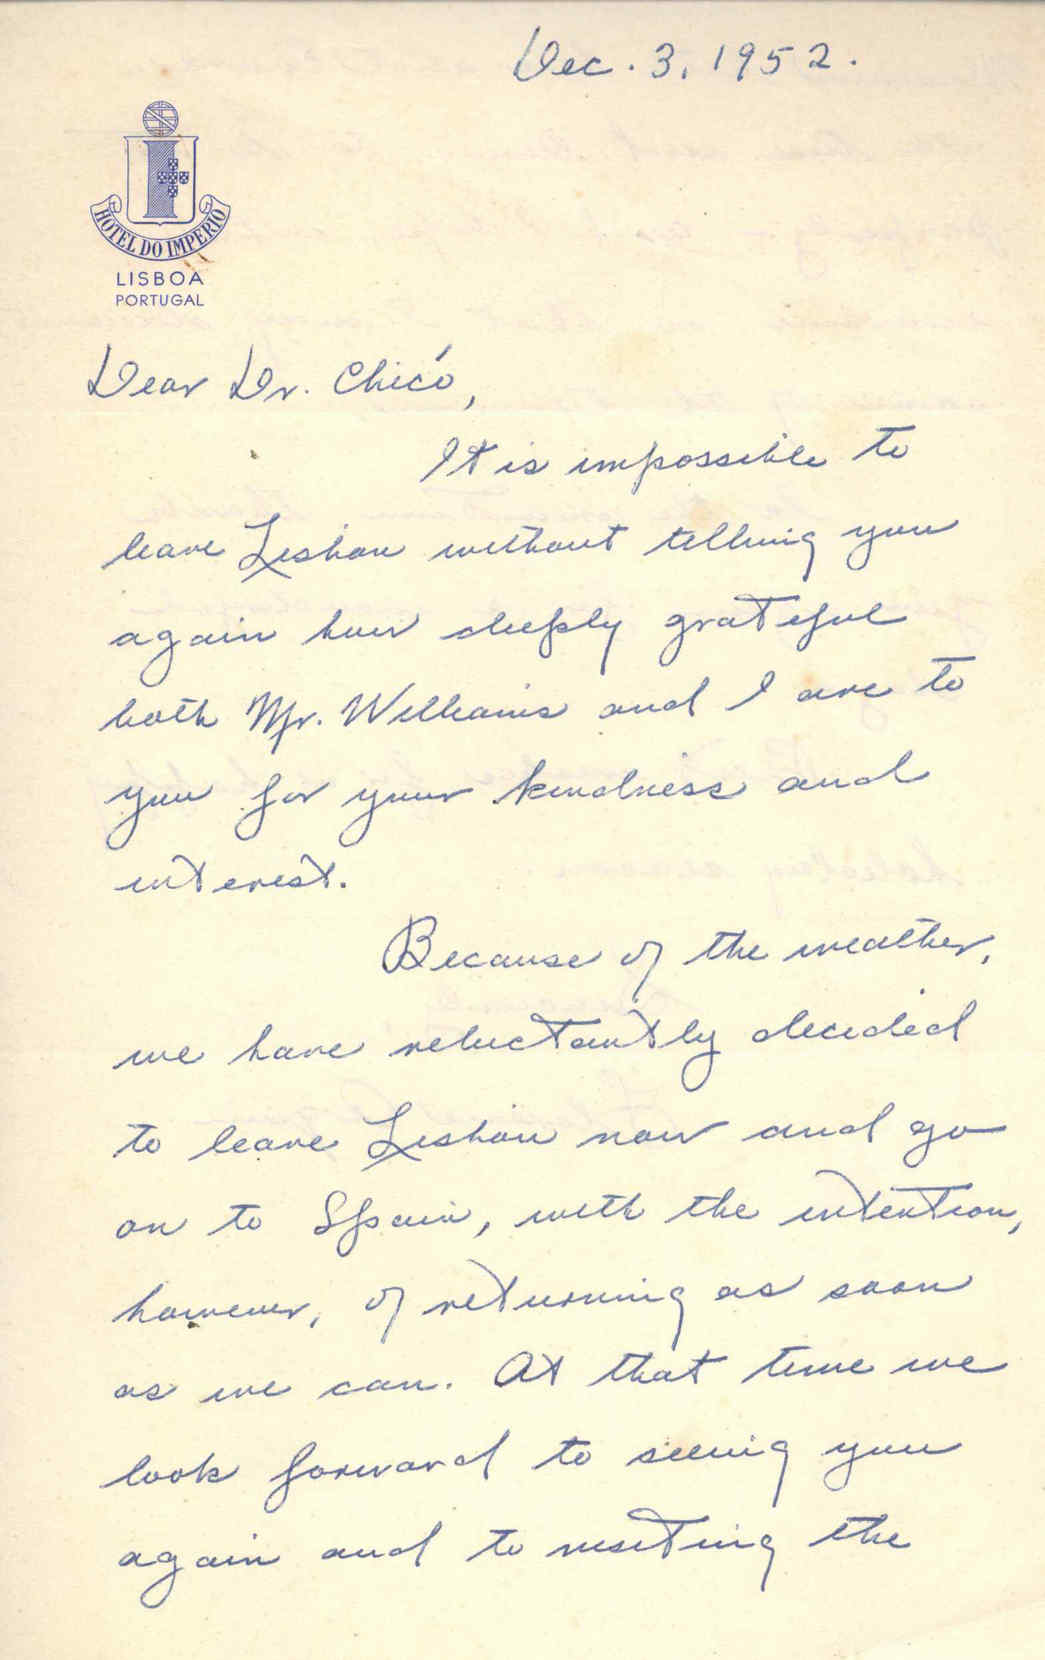 Dec. 3, 1952.
HOTEL DO IMPERIO
LISBOA
PORTUGAL
Dear Dr. Chicó,
It is impossible to
leave Lisbon without telling you
again how deeply grateful
both Mr. Williams and I are to
you for your kindness and
interest.
Because of the weather,
we have reluctantly decided
to leave Lisbon now and go
on to Spain, with the intention,
however, of returning as soon
as we can. At that time we
look forward to seeing you
again and to visiting the